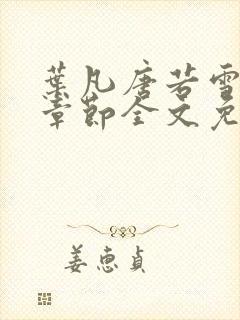 葉凡唐若雪
章節全文免
姜惠貞